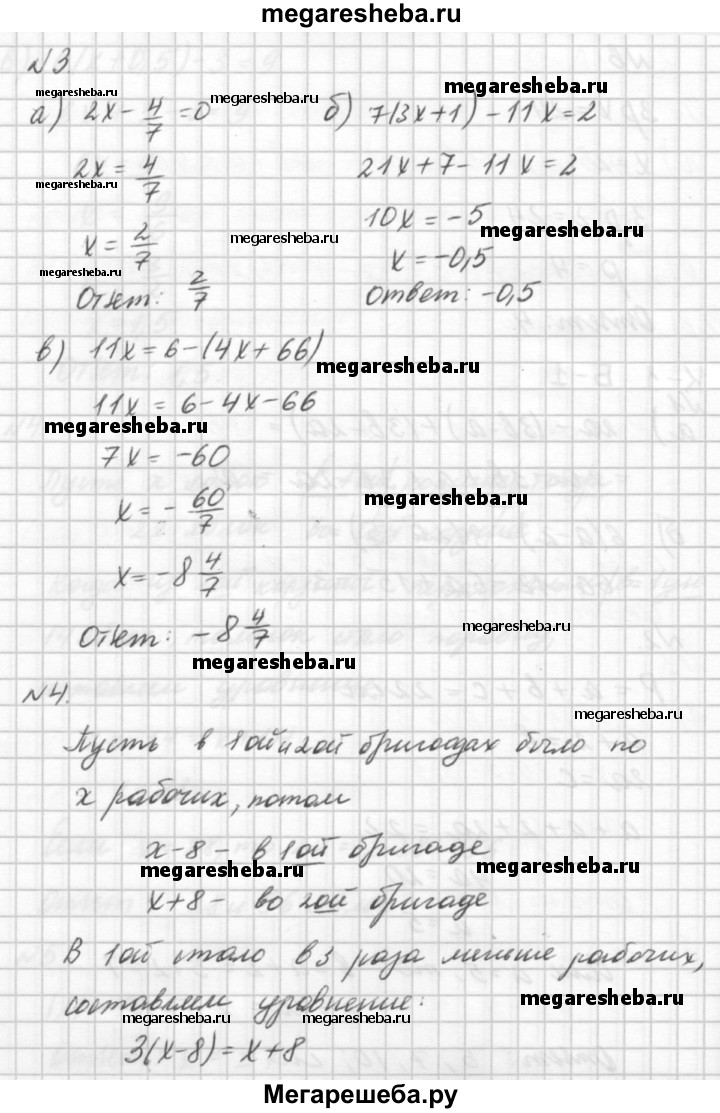 megaresheba.ru
№3
megaresheba.ru
а) 2x - 4/7 = 0
megaresheba.ru
2x = 4/7
megaresheba.ru
x = 2/7
megaresheba.ru
Ответ: 2/7
megaresheba.ru
б) 7(3x+1) - 11x = 2
21x + 7 - 11x = 2
10x = -5
megaresheba.ru
x = -0,5
Ответ: -0,5
megaresheba.ru
в) 11x = 6 - (4x + 66)
megaresheba.ru
11x = 6 - 4x - 66
megaresheba.ru
7x = -60
x = - 60/7
megaresheba.ru
x = -8 4/7
Ответ: -8 4/7
megaresheba.ru
megaresheba.ru
№4.
megaresheba.ru
Пусть в 1ой и 2ой бригадах было по
x рабочих, потом
x-8 - в 1ой бригаде
megaresheba.ru
megaresheba.ru
x+8 - во 2ой бригаде
В 1ой стало в 3 раза меньше рабочих,
составляем уравнение:
megaresheba.ru
megaresheba.ru
megaresheba.ru
3(x-8) = x+8
Мегарешеба.ру